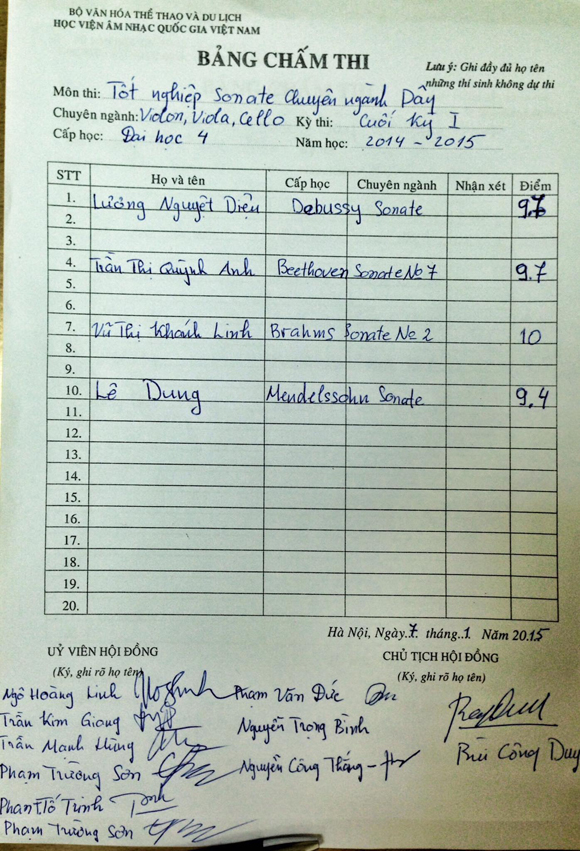 BỘ VĂN HÓA THỂ THAO VÀ DU LỊCH
HỌC VIỆN ÂM NHẠC QUỐC GIA VIỆT NAM
BẢNG CHẤM THI
Lưu ý: Ghi đầy đủ họ tên
những thí sinh không dự thi
Môn thi: Tốt nghiệp Sonate Chuyên ngành Dây
Chuyên ngành: Violon, Viola, Cello Kỳ thi: Cuối kỳ I
Cấp học: Đại học 4 Năm học: 2014 - 2015
STT Họ và tên Cấp học Chuyên ngành Nhận xét Điểm
1. Lương Nguyệt Diệu Debussy Sonate
2.
3.
4. Trần Thị Quỳnh Anh Beethoven Sonate No 7 9.7
5.
6.
7. Vũ Thị Khánh Linh Brahms Sonate No 2 10
8.
9.
10. Lê Dung Mendelssohn Sonate 9.4
11.
12.
13.
14.
15.
16.
17.
18.
19.
20.
Hà Nội, Ngày 7 tháng 1 Năm 2015
UỶ VIÊN HỘI ĐỒNG
(Ký, ghi rõ họ tên)
CHỦ TỊCH HỘI ĐỒNG
(Ký, ghi rõ họ tên)
Ngô Hoàng Linh
Phạm Văn Đức
Trần Kim Giang
Nguyễn Trọng Bình
Trần Mạnh Hùng
Bùi Công Duy
Phạm Trường Sơn
Nguyễn Công Thắng
Phan Tố Trinh
Phạm Trường Sơn